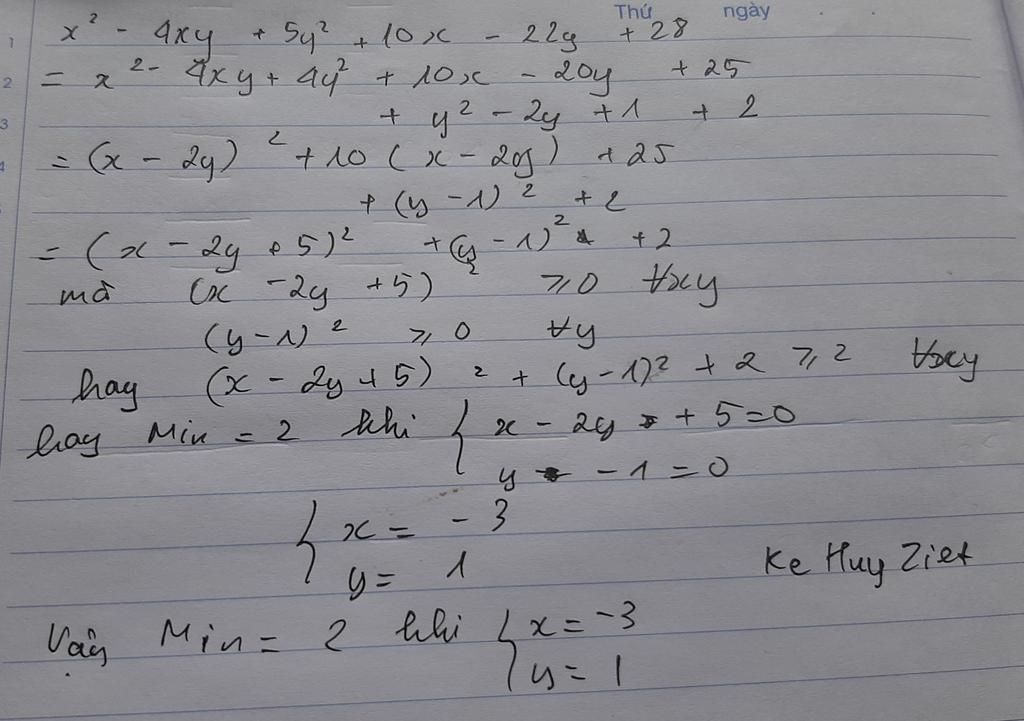 Thứ ngày
x² - 4xy + 5y² + 10x - 22y + 28
= x² - 4xy + 4y² + 10x - 20y + 25
+ y² - 2y + 1 + 2
= (x - 2y)² + 10(x - 2y) + 25
+ (y - 1)² + 2
= (x - 2y + 5)² + (y - 1)² + 2
mà (x - 2y + 5)² ≥ 0 ∀xy
(y - 1)² ≥ 0 ∀y
hay (x - 2y + 5)² + (y - 1)² + 2 ≥ 2 ∀xy
hay Min = 2 khi { x - 2y + 5 = 0
y - 1 = 0
{ x = - 3
y = 1
Ke Huy Ziet
Vậy Min = 2 khi { x = -3
y = 1